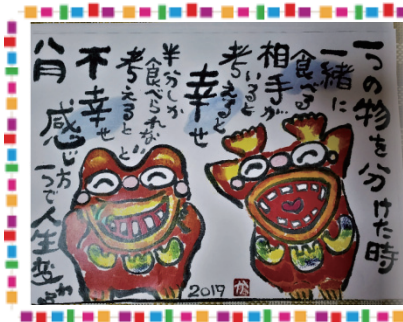 一つの物を分けた時
一緒に
食べる
相手が
いると
考えると
幸せ
半分しか
食べられないと
考えると
不幸せ
八月
感じ方
一つで人生変わる
2017